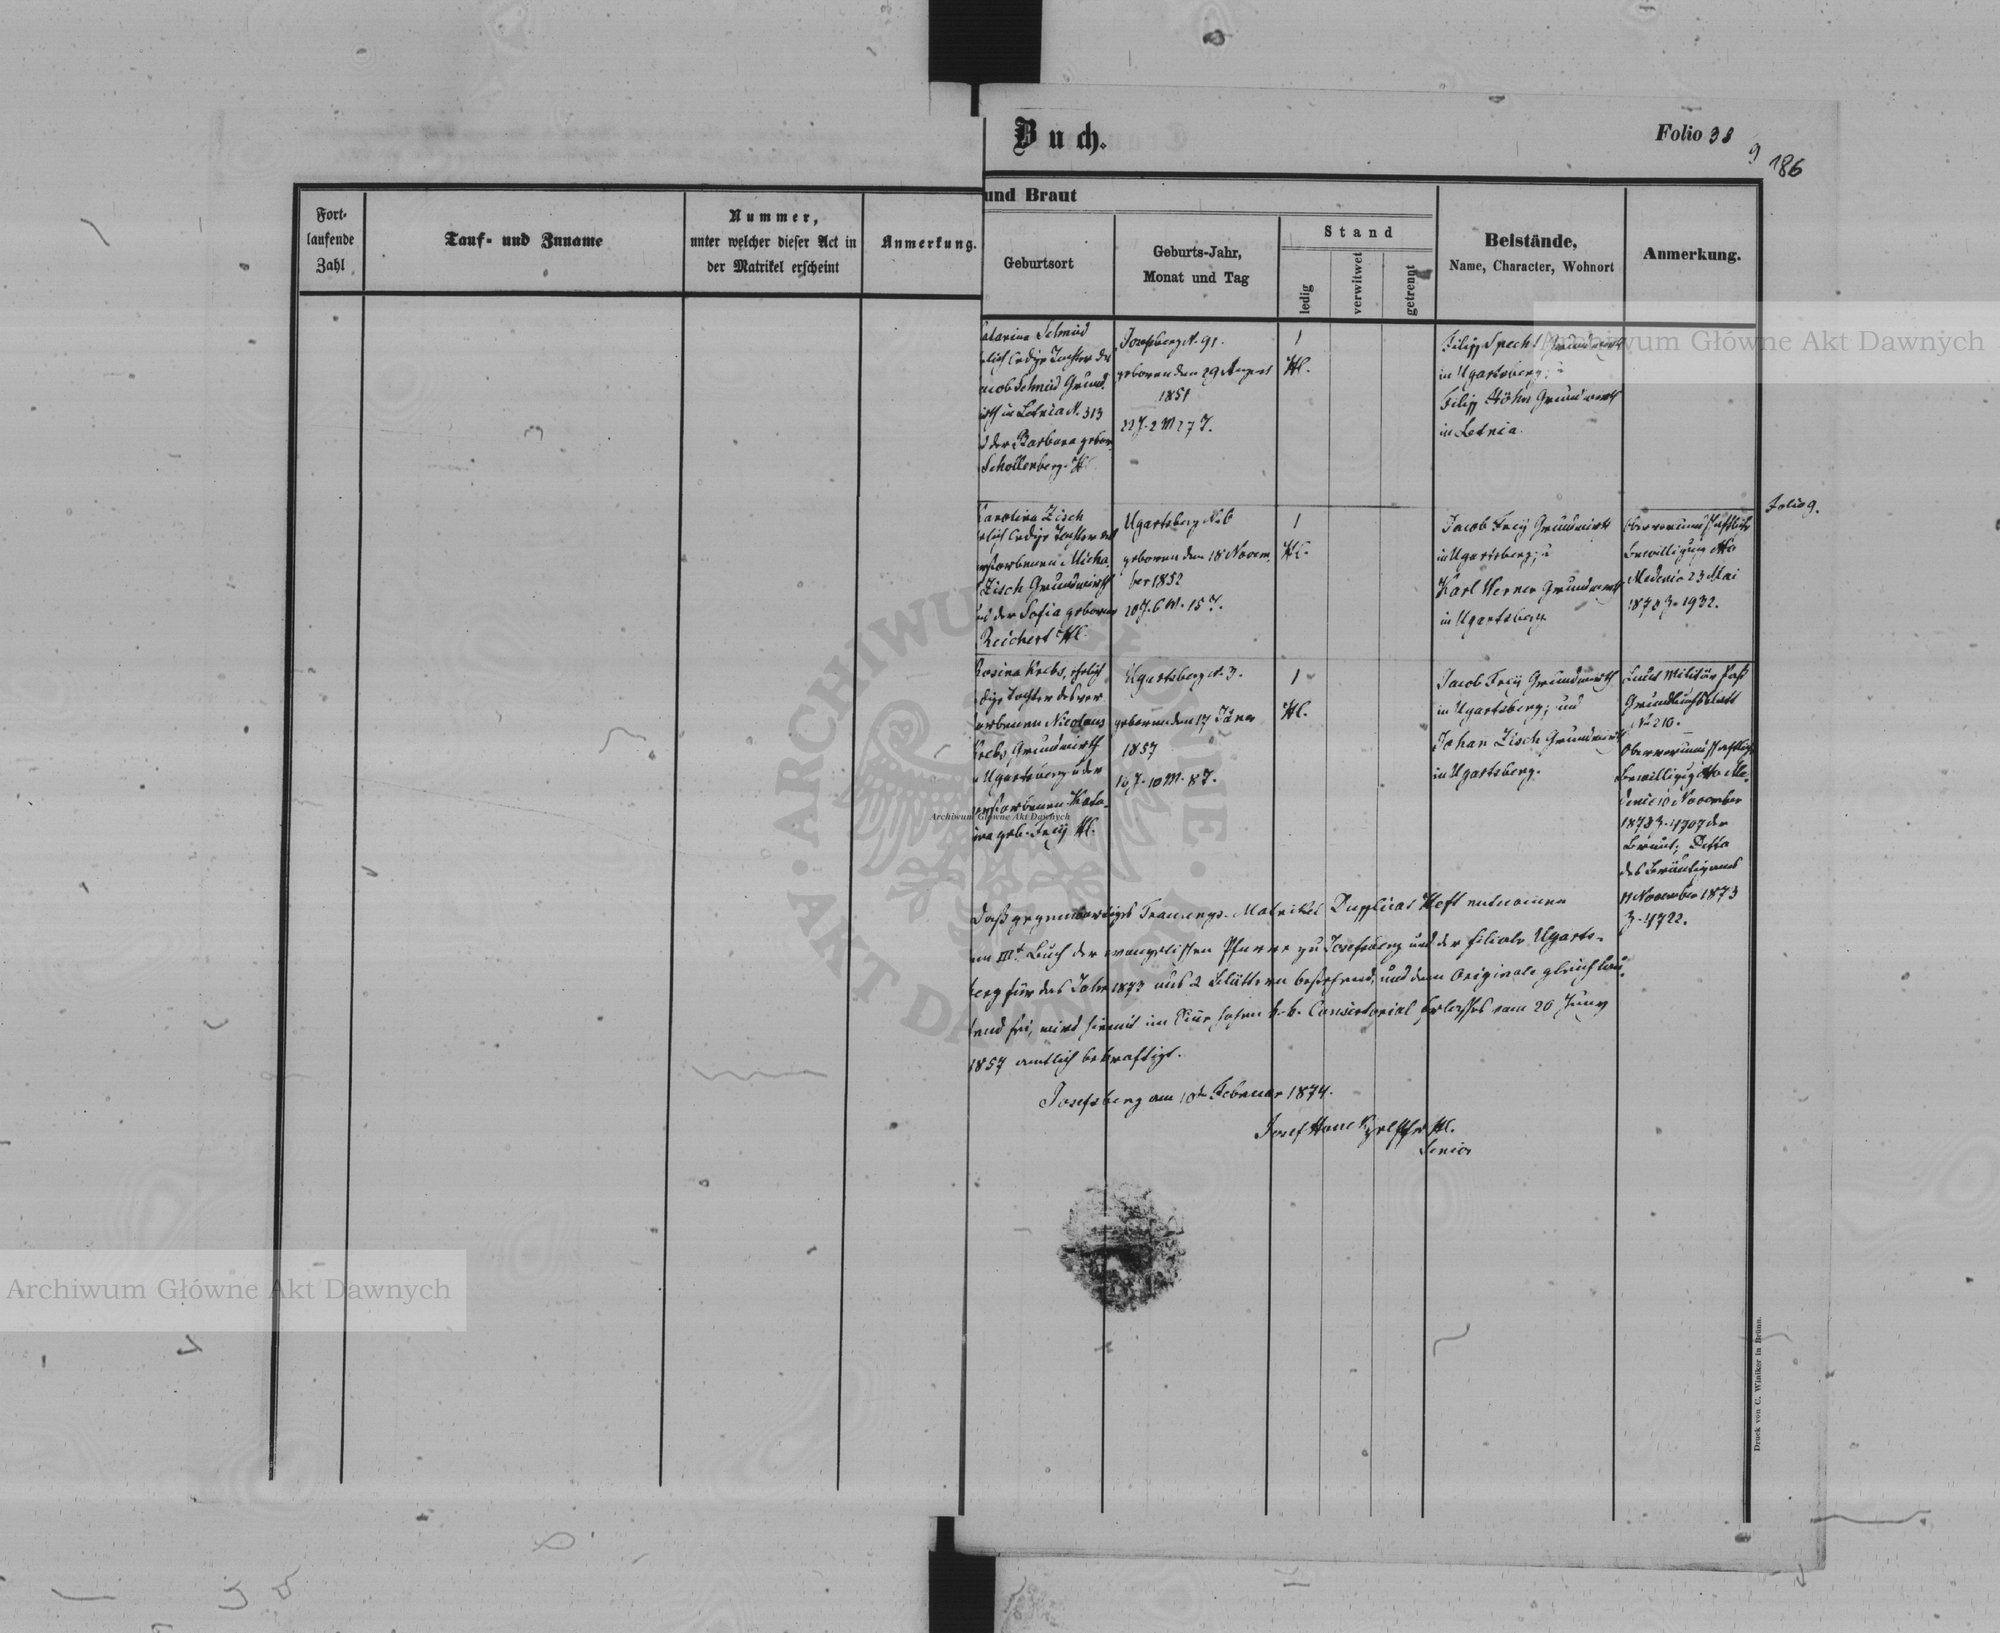 Buch.
Folio 38
9
186
Fort-
laufende
Zahl
Tauf- und Zuname
Nummer,
unter welcher dieser Act in
der Matrikel erscheint
Anmerkung.
und Braut
Geburtsort
Geburts-Jahr,
Monat und Tag
Stand
ledig
verwitwet
getrennt
Beistände,
Name, Character, Wohnort
Anmerkung.
atarina Schmid
elich ledige Tochter des
acob Schmid Grund
irth in Letnia N. 313
d der Barbara gebor
Schollenberg. Hl.
Josefsberg N. 91.
geboren den 29 August
1851
22 J. 2 M 27 T.
1
Hl.
Filipp Specht Grundwirth
in Ugartsberg; u
Filipp Höhn Grundwirth
in Letnia.
Folio 9.
Karolina Zisch
elich ledige Tochter des
erstorbenen Micha
Zisch Grundwirth
nd der Sofia geboren
Reichert Hl.
Ugartsberg N. 6
geboren den 18 Novem
ber 1852
20 J. 6 M. 15 T.
1
Hl.
Jacob Freÿ Grundwirth
in Ugartsberg; u
Karl Werner Grundwirth
in Ugartsberg.
Obervormundschaftliche
Bewilligung dto
Medenic 23 Mai
1873 Z. 1932.
Rosina Krebs, ehelich
edige Tochter des ver
orbenen Nicolaus
Krebs Grundwirth
n Ugartsberg u der
erstorbenen Kata-
ina geb. Freÿ Hl.
Ugartsberg N. 3.
geboren den 17 Jäner
1857
16 J. 10 M. 8 T.
1
Hl.
Jacob Freÿ Grundwirth
in Ugartsberg; und
Johan Zisch Grundwirth
in Ugartsberg.
Laut Militär Paß
Grundbuchsblatt
No 210.
Obervormundschaftliche
Bewilligung dto Me-
denic 10 November
1873 Z. 4707 der
Braut; Detto
des Bräutigams
11 November 1873
Z. 4722.
Daß gegenwärtiges Trauungs-Matrikel Dupplicat Heft entnomen
em IIIt. Buch der evangelischen Pfarre zu Josefsberg und der Filiale Ugarts-
berg für das Jahr 1873 aus 2 Blättern bestehend, und dem Originale gleichlau-
tend sei, wird hiemit im Sinne hohen k. k. Consistorial Erlasses vom 20 Juny
1857 amtlich bekräftigt.
Josefsberg am 10t Februar 1874.
Josef
Senior
Druck von C. Winiker in Brünn.
Archiwum Główne Akt Dawnych
Archiwum Główne Akt Dawnych
Archiwum Główne Akt Dawnych
ARCHIWUM GŁÓWNE AKT DAWNYCH